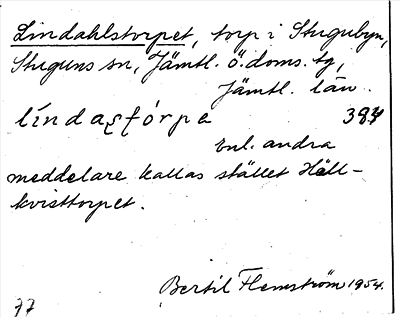 Lindahlstorpet, torp i Stugubyn,
Stuguns sn, Jämtl. ö. doms. tg,
Jämtl. län.
384
Enl. andra
meddelare kallas stället Häll-
kvisttorpet.
Bertil Flemström 1954.
77